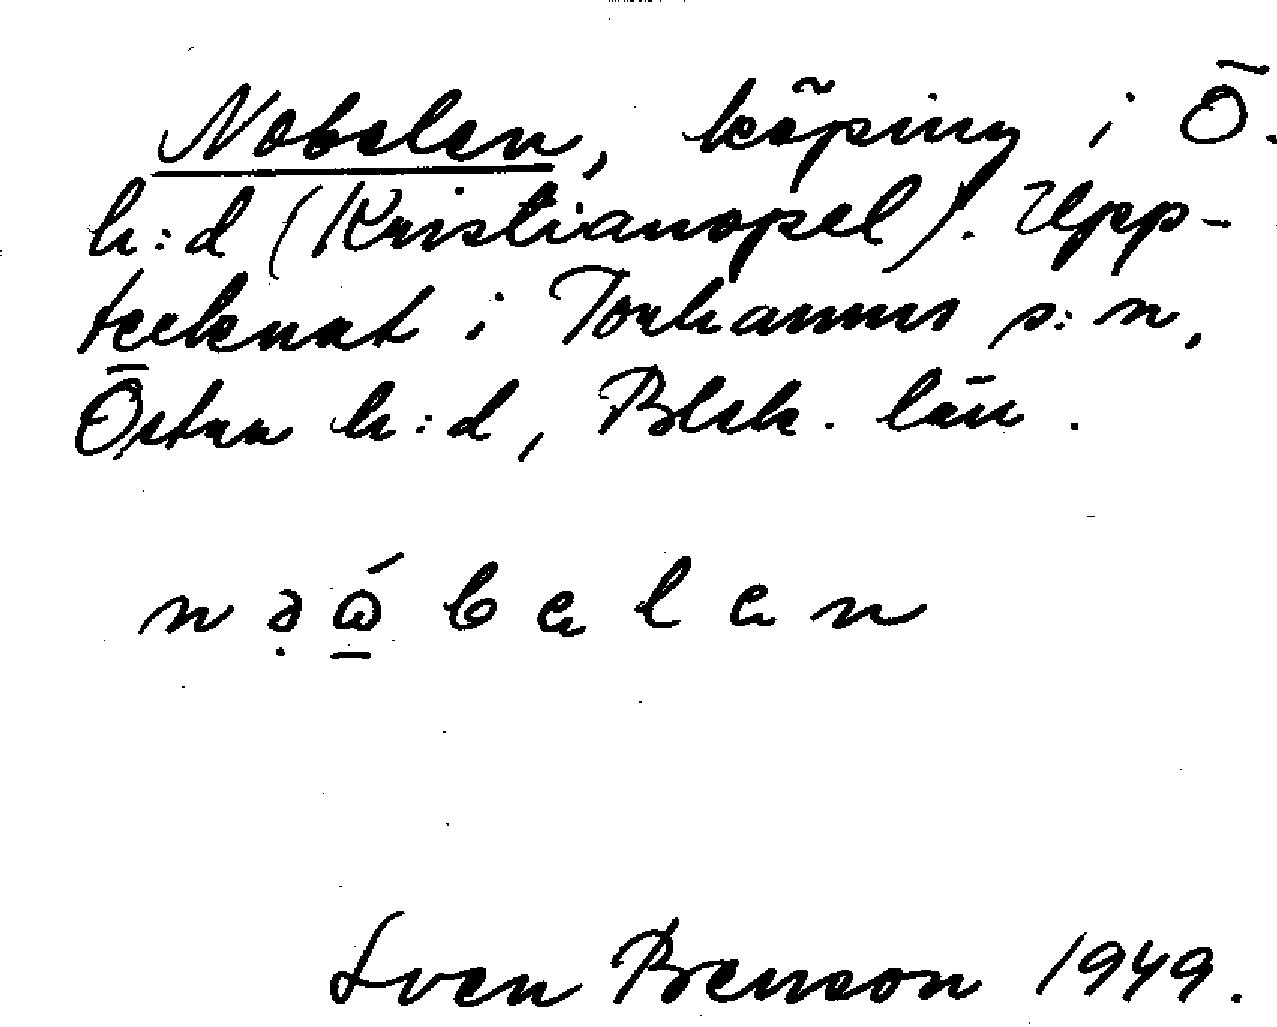 Nobelen, köping i Ö.
h:d (Kristianopel). Upp-
tecknat i Torhamns s:n,
Östra h:d, Blek. län.
Sven Benson 1949.